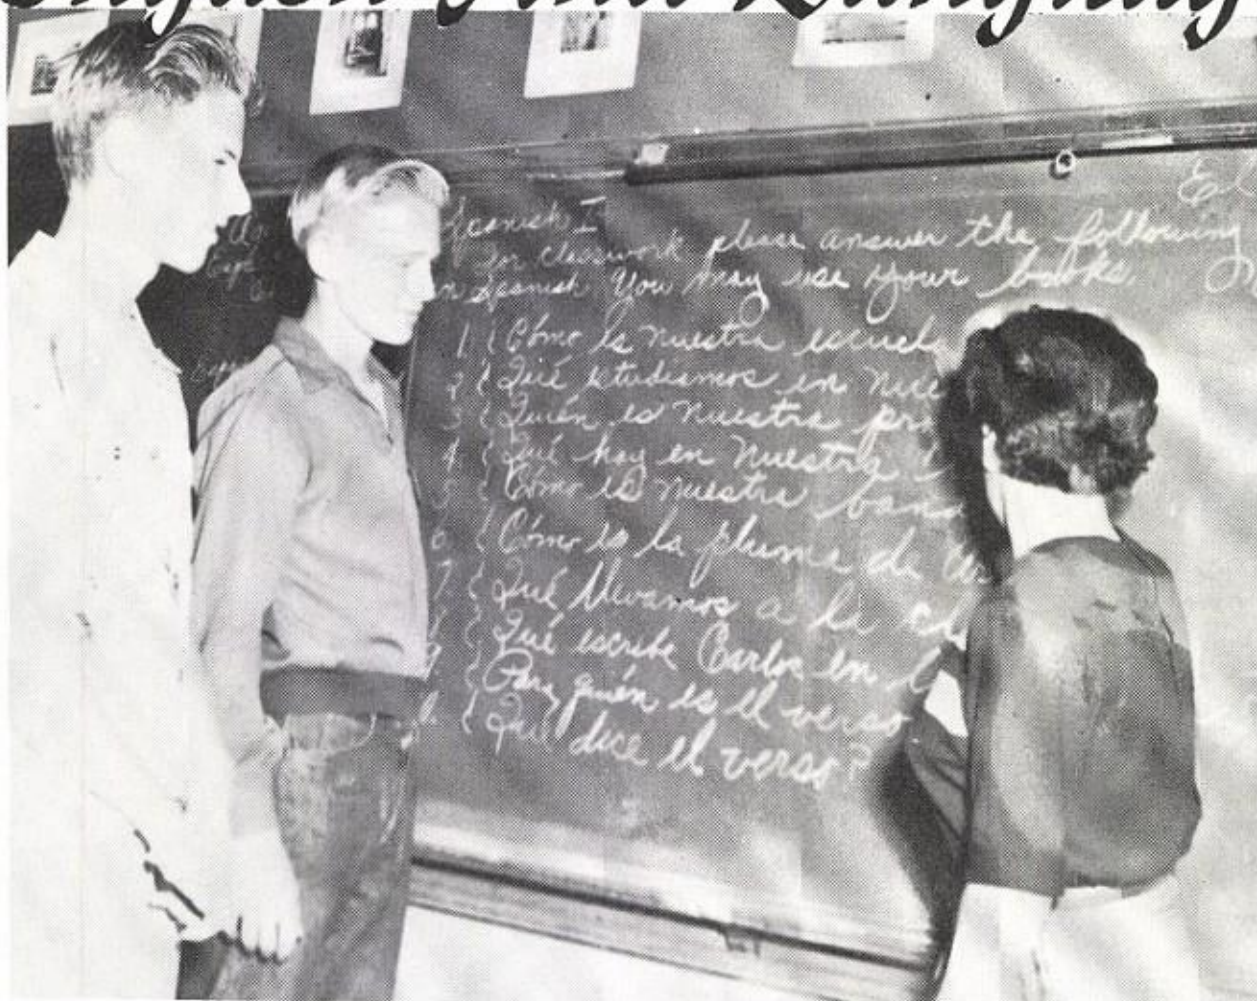 English And Languag
El
Spanish I
For classwork please answer the following
in Spanish You may use your books.
1 ¿Cómo es nuestra escuela
2 ¿Qué estudiamos en nue
3 ¿Quién es nuestra pr
4 ¿Qué hay en nuestra
5 ¿Cómo es nuestra band
6 ¿Cómo es la pluma de
7 ¿Qué llevamos a la cl
8 ¿Qué escribe Carlos en
9 ¿Para quién es el verso
10. ¿Qué dice el verso?